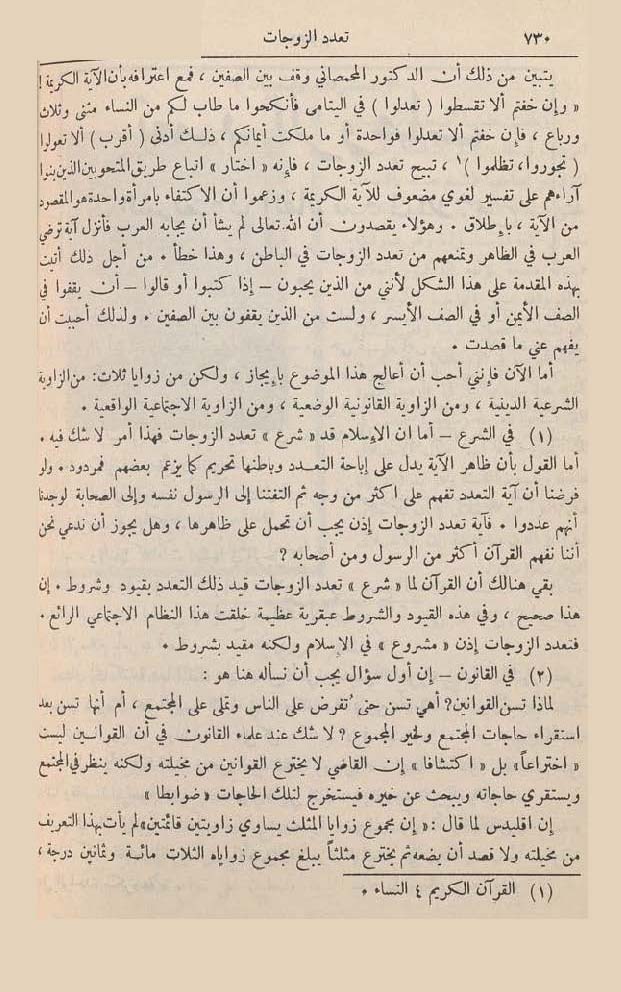 ٧٣٠
تعدد الزوجات
يتبين من ذلك أن الدكتور المحمصاني وقف بين الصفين ، فمع اعترافه بأن الآية الكريمة !
« وإن خفتم ألا تقسطوا ( تعدلوا ) في اليتامى فأنكحوا ما طاب لكم من النساء مثنى وثلاث
ورباع ، فإن خفتم ألا تعدلوا فواحدة أو ما ملكت أيمانكم ، ذلك أدنى ( أقرب ) ألا تعولوا
( تجوروا، تظلموا )١ ، تبيح تعدد الزوجات ، فإنه « اختار » اتباع طريق المتحوبين الذين بنوا
آراءهم على تفسير لغوي مضعوف للآية الكريمة ، وزعموا أن الاكتفاء بامرأة واحدة هو المقصود
من الآية ، بإطلاق . وهؤلاء يقصدون أن الله تعالى لم يشأ أن يجابه العرب فأنزل آية ترضي
العرب في الظاهر وتمنعهم من تعدد الزوجات في الباطن ، وهذا خطأ . من أجل ذلك أتيت
بهذه المقدمة على هذا الشكل لأنني من الذين يحبون – إذا كتبوا أو قالوا – أن يقفوا في
الصف الأيمن أو في الصف الأيسر ، ولست من الذين يقفون بين الصفين . ولذلك أحببت أن
يفهم عني ما قصدت .
أما الآن فإنني أحب أن أعالج هذا الموضوع بإيجاز ، ولكن من زوايا ثلاث: من الزاوية
الشرعية الدينية ، ومن الزاوية القانونية الوضعية ، ومن الزاوية الاجتماعية الواقعية .
(١) في الشرع – أما ان الإسلام قد « شرع » تعدد الزوجات فهذا أمر لا شك فيه .
أما القول بأن ظاهر الآية يدل على إباحة التعدد وباطنها تحريم كما يزعم بعضهم فمردود . ولو
فرضنا أن آية التعدد تفهم على اكثر من وجه ثم التفتنا إلى الرسول نفسه وإلى الصحابة لوجدنا
أنهم عددوا . فآية تعدد الزوجات إذن يجب أن تحمل على ظاهرها ، وهل يجوز أن ندعي نحن
أننا نفهم القرآن أكثر من الرسول ومن أصحابه ?
بقي هنالك أن القرآن لما « شرع » تعدد الزوجات قيد ذلك التعدد بقيود وشروط . إن
هذا صحيح ، وفي هذه القيود والشروط عبقرية عظيمة خلقت هذا النظام الاجتماعي الرائع .
فتعدد الزوجات إذن « مشروع » في الإسلام ولكنه مقيد بشروط .
(٢) في القانون – إن أول سؤال يجب أن نسأله هنا هو :
لماذا تسن القوانين? أهي تسن حتى تُفرض على الناس وتملى على المجتمع ، أم أنها تسن بعد
استقراء حاجات المجتمع ولخير المجموع ? لا شك عند علماء القانون في أن القوانين ليست
« اختراعاً» بل « اكتشافا » إن القاضي لا يخترع القوانين من مخيلته ولكنه ينظر في المجتمع
ويستقري حاجاته ويبحث عن خيره فيستخرج لتلك الحاجات « ضوابطا »
إن اقليدس لما قال :« إن مجموع زوايا المثلث يساوي زاويتين قائمتين» لم يأت بهذا التعريف
من مخيلته ولا قصد أن يضعه ثم يخترع مثلثاً يبلغ مجموع زواياه الثلاث مائة وثمانين درجة ،
(١) القرآن الكريم ٤ النساء .